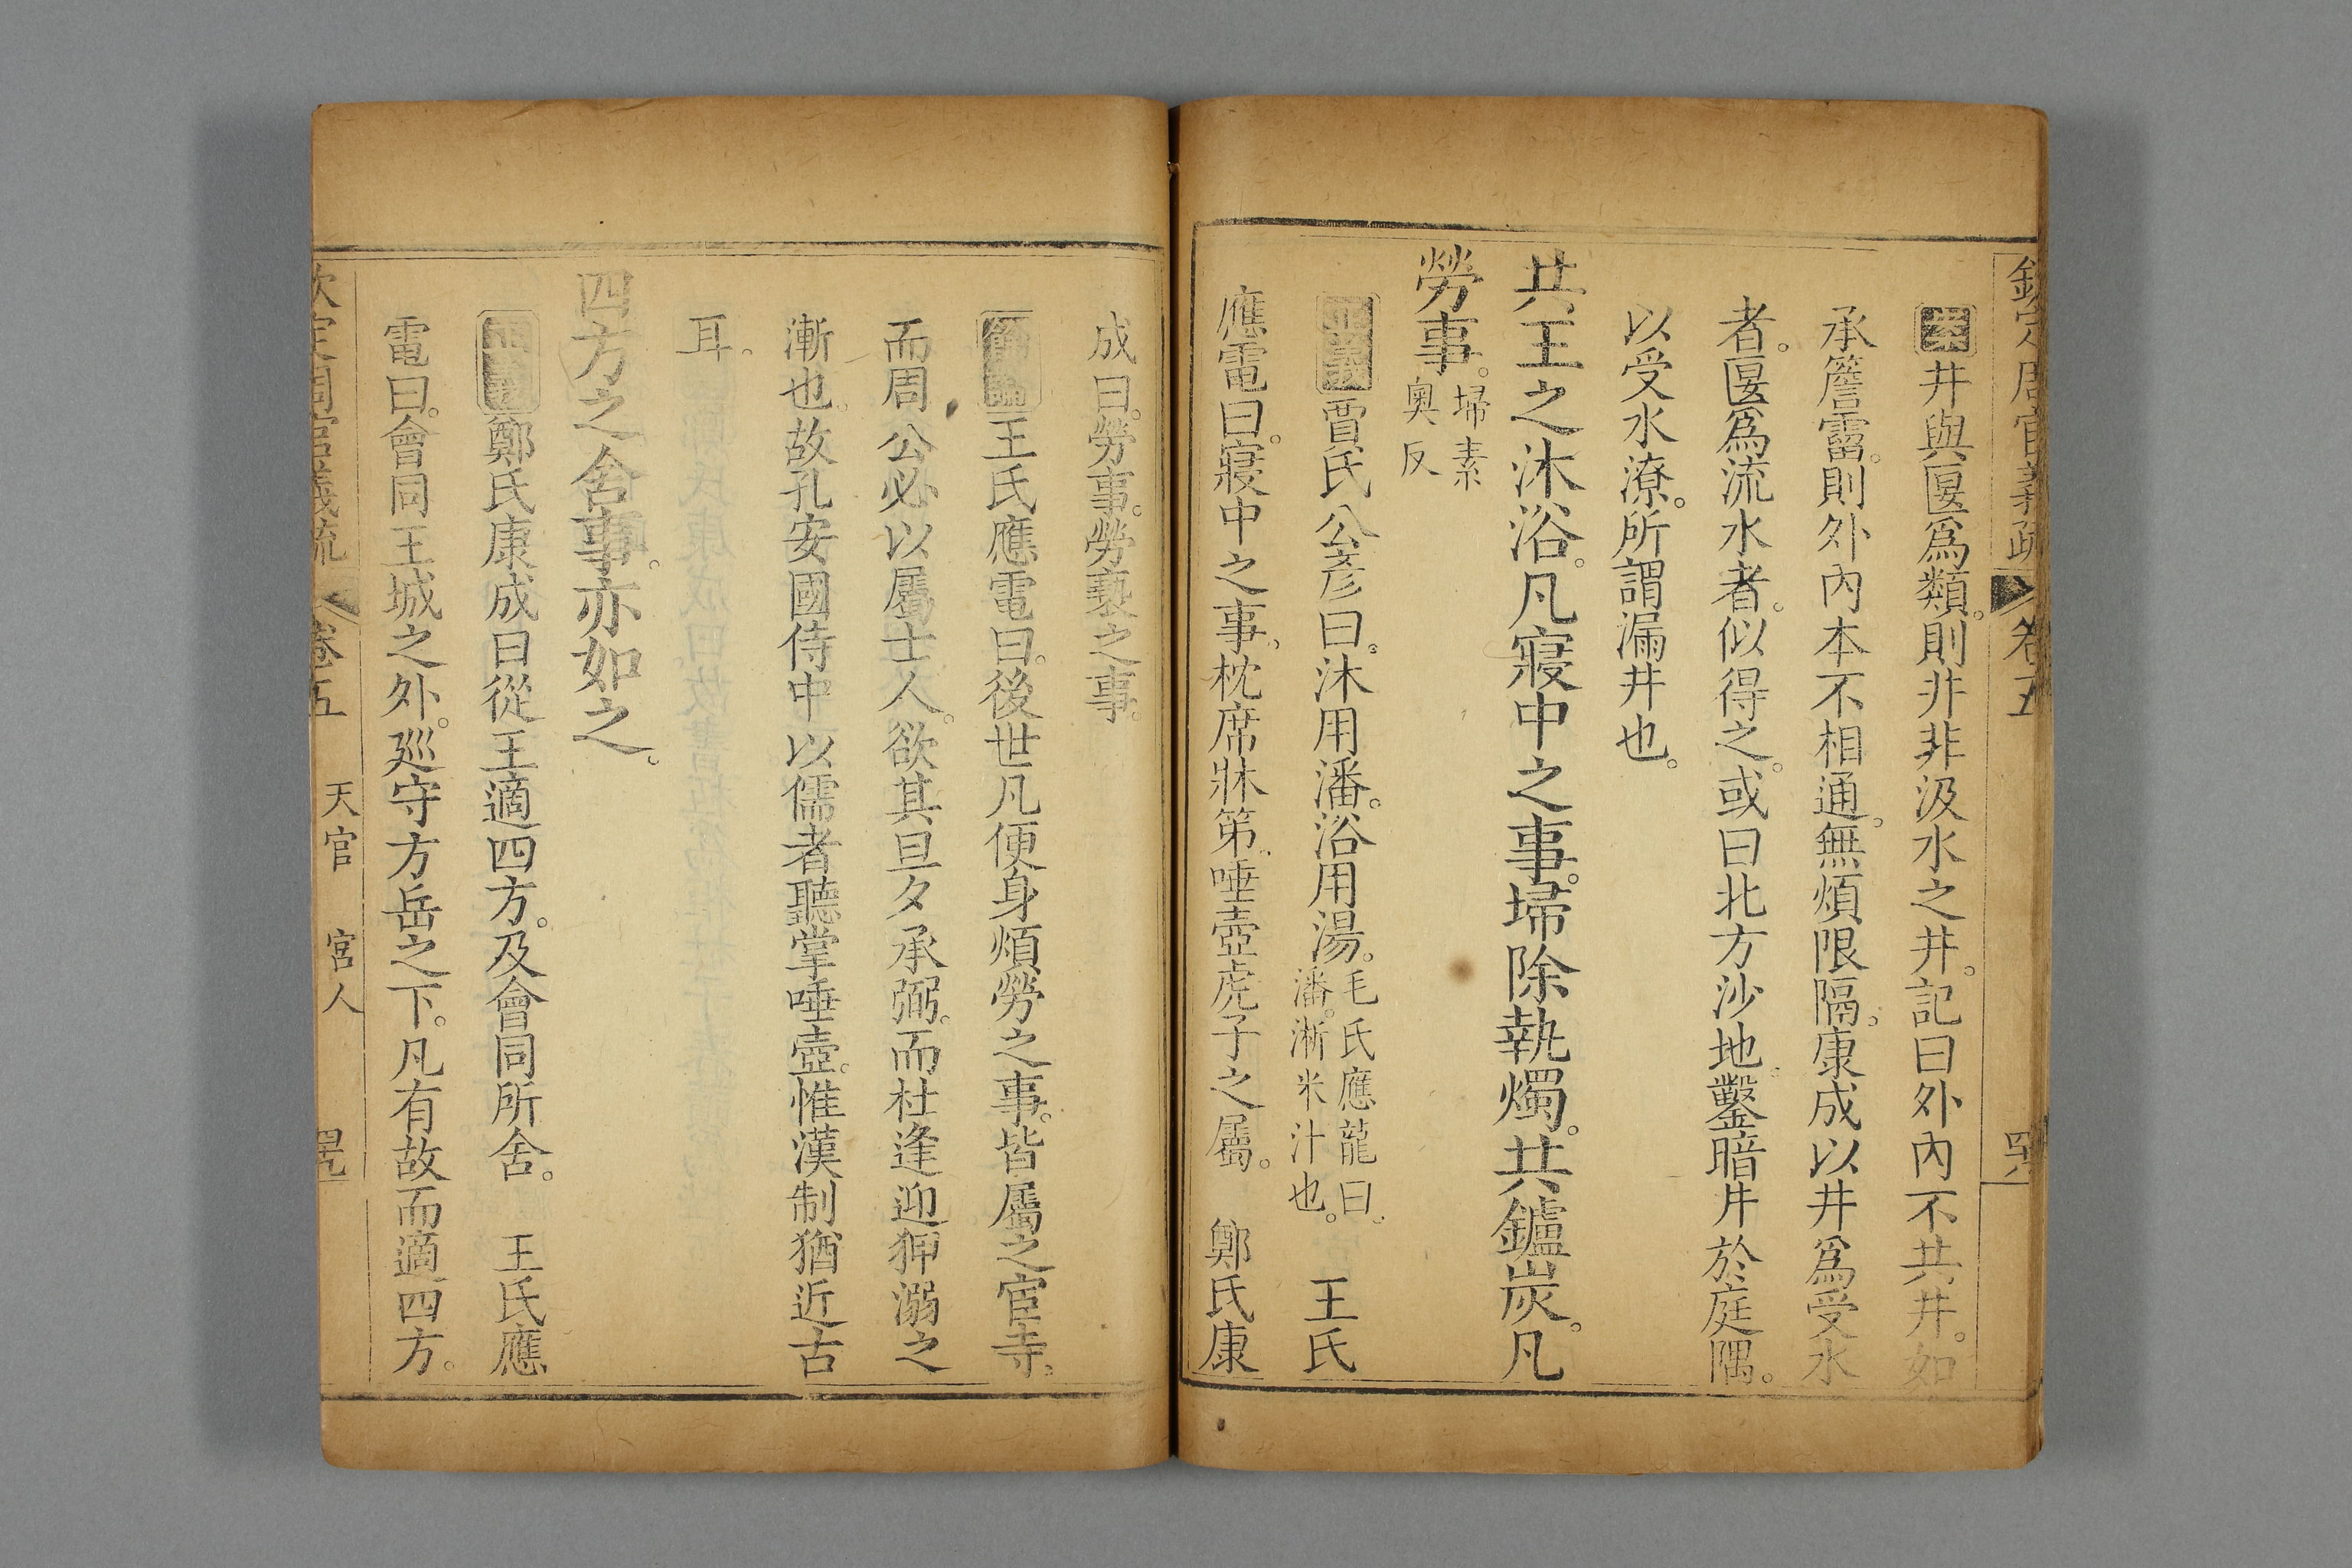 欽定周官義疏 卷五
案井與匽爲類。則非非汲水之井。記曰外內不共井。如
承簷霤。則外內本不相通。無煩限隔。康成以井爲受水
者。匽爲流水者。似得之。或曰北方沙地。鑿暗井於庭隅。
以受水潦。所謂漏井也。
共王之沐浴。凡寢中之事。埽除執燭。共鑪炭。凡
勞事。埽素奧反
正義賈氏公彥曰。沐用潘。浴用湯。毛氏應龍曰。潘。淅米汁也。 王氏
應電曰。寢中之事。枕席牀第。唾壺虎子之屬。 鄭氏康
成曰。勞事。勞褻之事。
餘論王氏應電曰。後世凡便身煩勞之事。皆屬之宦寺。
而周公必以屬士人。欲其旦夕承弼。而杜逢迎狎溺之
漸也。故孔安國侍中以儒者聽掌唾壺。惟漢制猶近古
耳。
四方之舍事。亦如之。
正義鄭氏康成曰從王適四方。及會同所舍。 王氏應
電曰。會同王城之外。廵守方岳之下。凡有故而適四方。
欽定周官義疏 卷五 天官 宮人